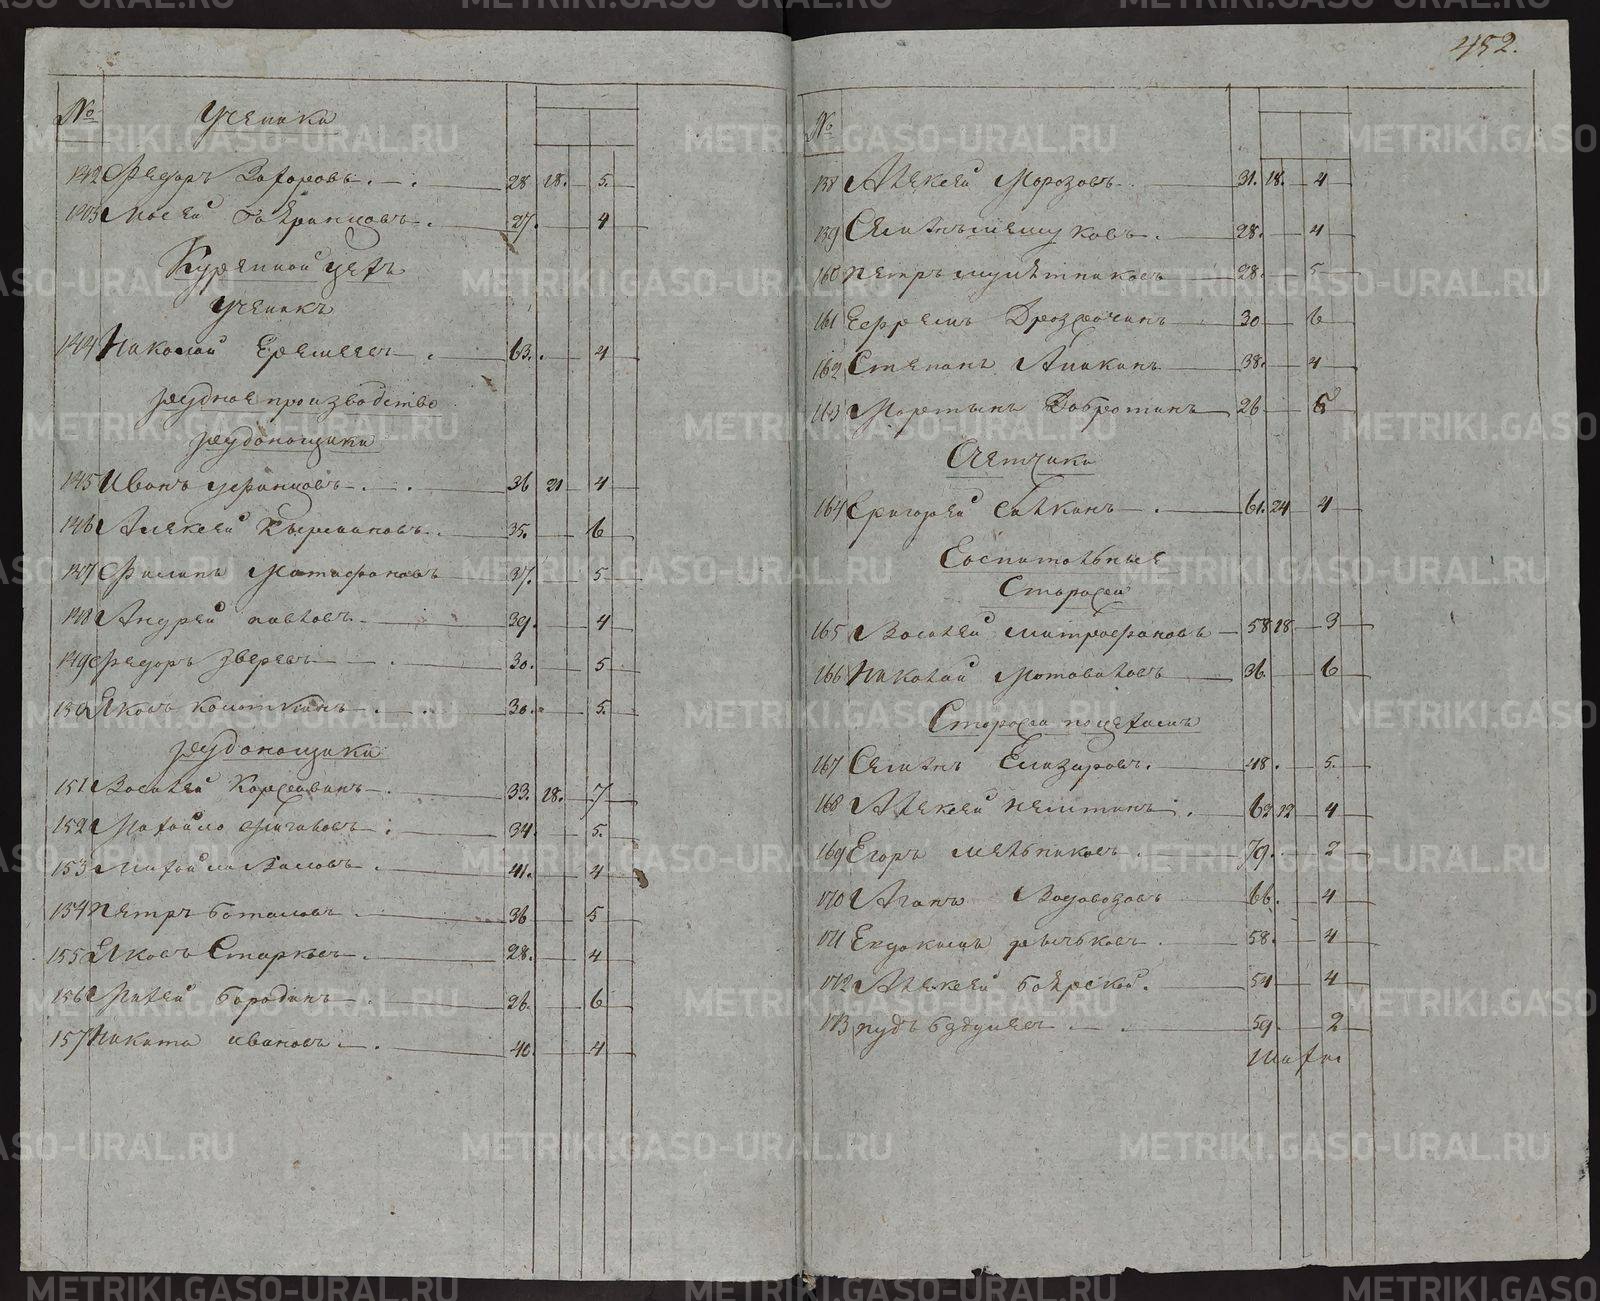 № Ученики
142 Федоръ Захаровъ 28 18. 5.
143 27. 4
Куренной цехъ
Ученикъ
144 Николай Еремеевъ 63. 4
рудное производство
рудонощики
145 Иванъ 36 21 4
146 Алексей 35. 6
147 Филипъ Матафановъ 37. 5
148 Андрей павловъ 39. 4
149 Федоръ Зверевъ 30. 5
150 Яковъ 30. 5.
рудонощики
151 Василей Коржавинъ 33. 18. 7
152 Михайло 34. 5.
153 Михайло 41. 4
154 петръ баталовъ 36 5
155 Яковъ Старковъ 28. 4
156 бородинъ 26. 6
157 Никита ивановъ 40. 4
452.
№
158 Алексей Морозовъ 31. 18. 4
159 28. 4
160 петръ 28. 5
161 Ефремъ 30 6
162 Степанъ Аникинъ 38. 4
163 Мартынъ Добротинъ 26 6
Счетчики
164 Григорей 61. 24 4
Госпитальные
Сторожи
165 Василей митрофановъ 58 18 3
166 Николай Мотовиловъ 36 6
Сторожи по цехамъ
167 Семенъ Елизаровъ. 48. 5.
168 Алексей 62 12 4
169 Егоръ мельниковъ. 79. 2
170 Агапъ 66. 4
171 Евдокимъ рычковъ 58. 4
172 Алексей боярской. 51 4
173 пудъ 59 2